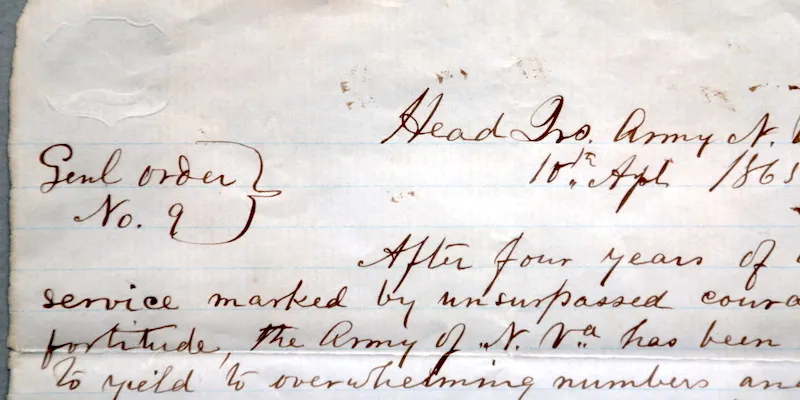 Head Qrs. Army N.
Genl order
10th Apl 1865
No. 9
After four years of
service marked by unsurpassed coura
fortitude, the Army of N. Va has been
to yield to overwhelming numbers and